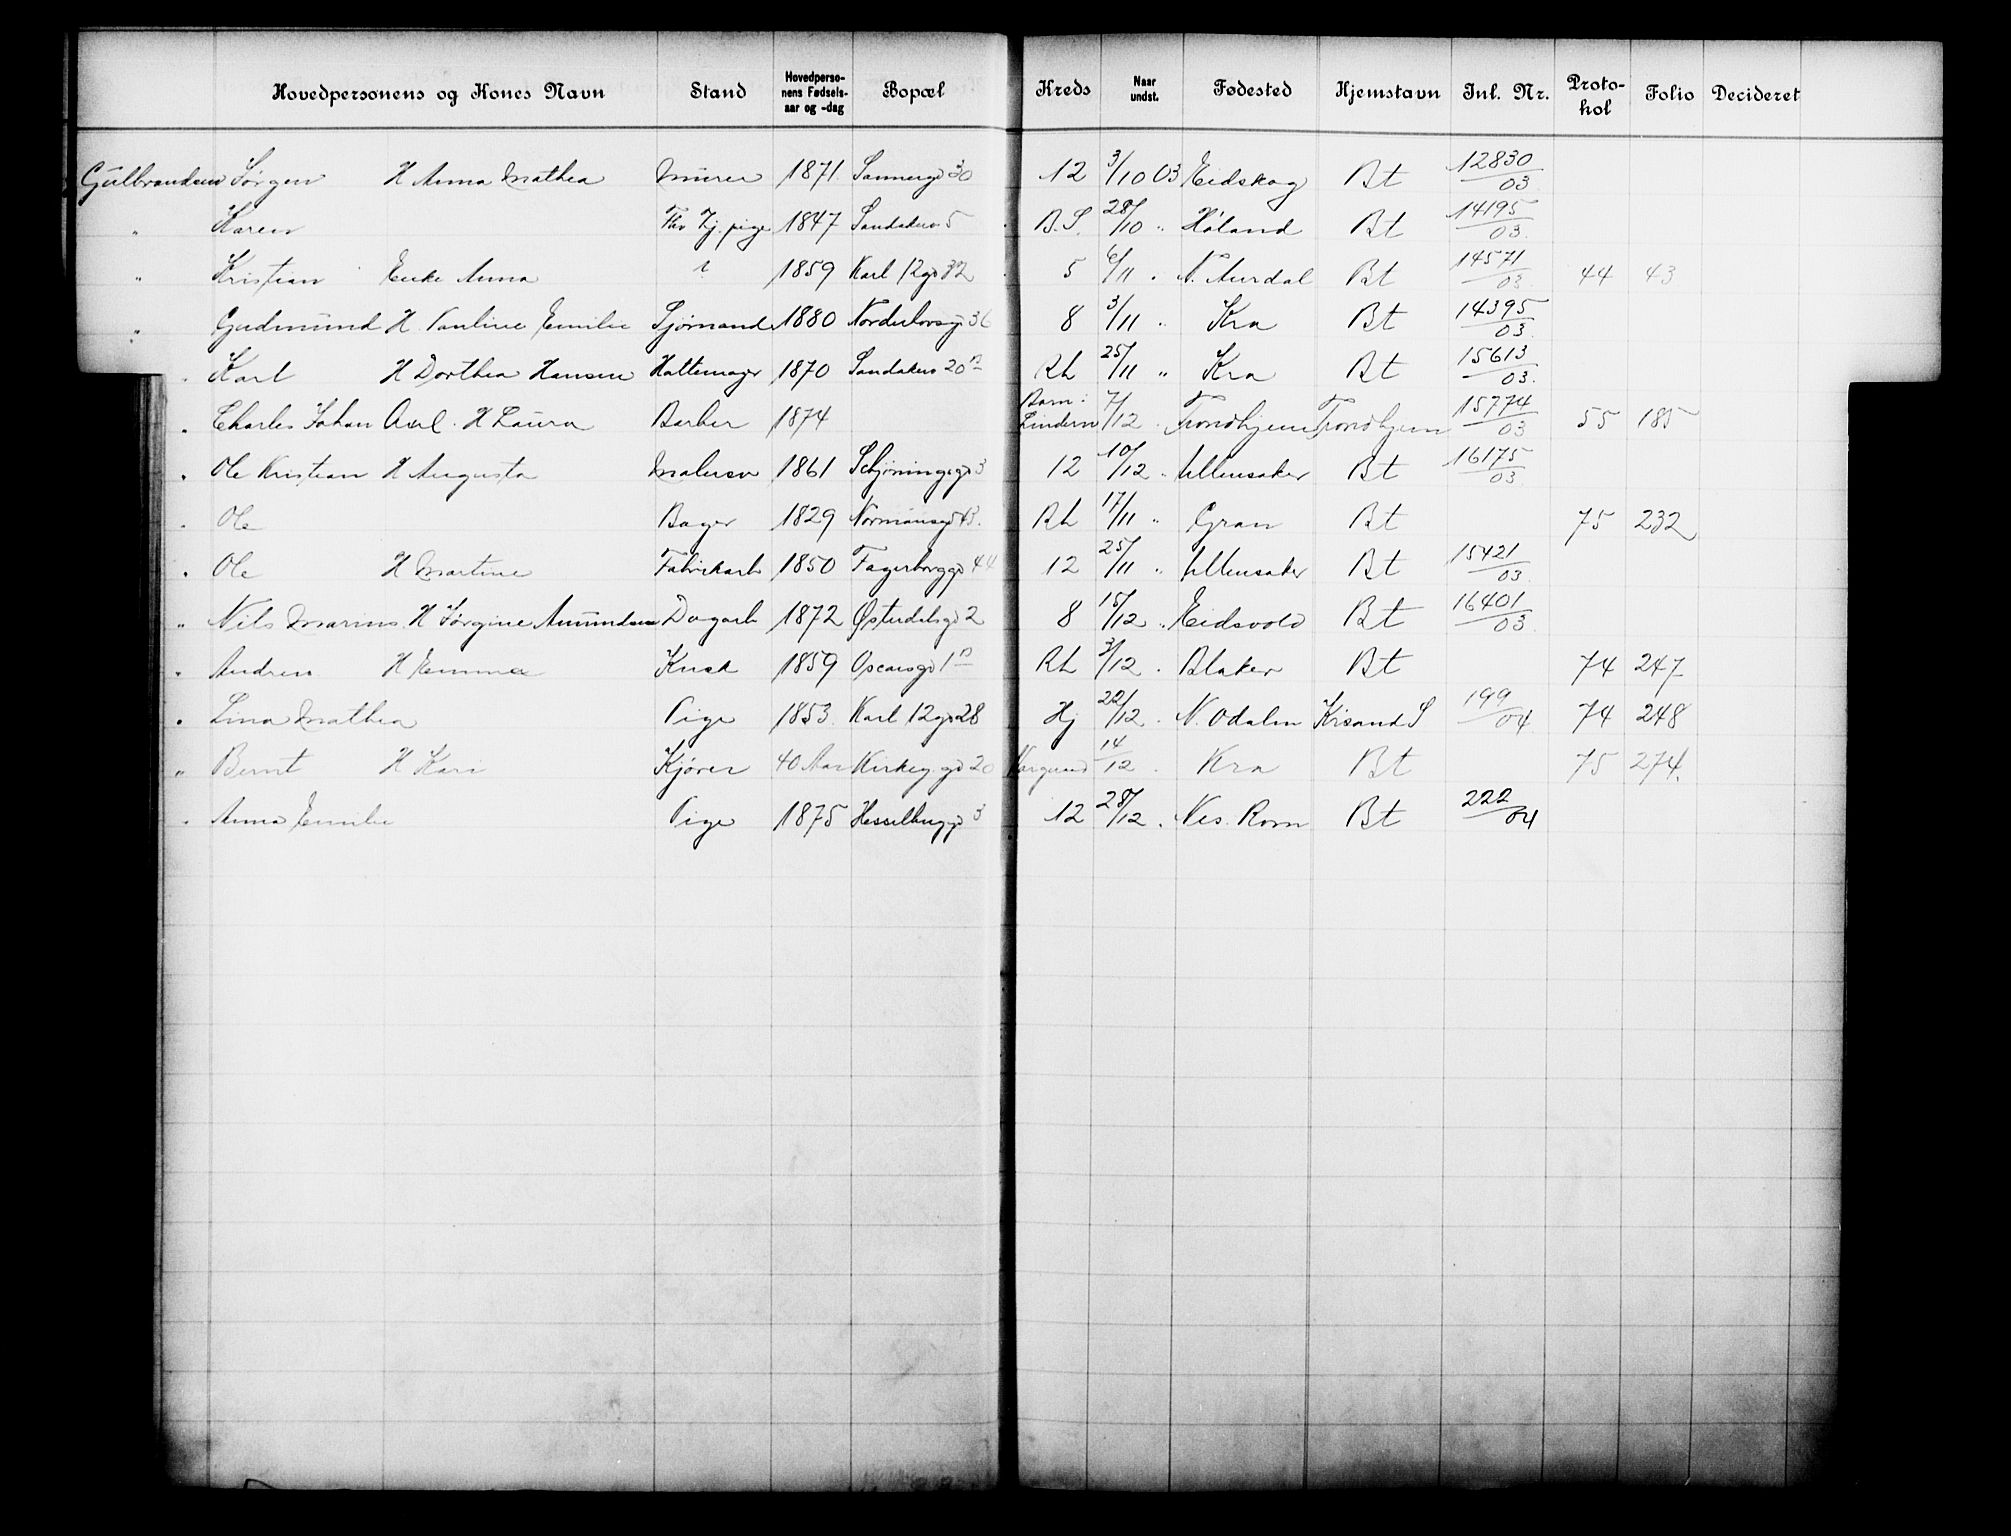 Hovedpersonens og Kones Navn Stand Hovedperso-nens Fødsels-aar og -dag Bopæl Kreds Naar undst. Fødested Hjemstavn Inl. Nr. Proto-kol Folio Decideret
Gulbrandsen Jørgen H Anna Mathea Murer 1871. Sannergd 30 12 3/10 03 Eidskog Bt 12830/03
" Karen Tj. pige 1847 Sandakerv 5 B.S. 28/10 " Høland Bt 14195/03
" Kristian Enke Anna 1859 Karl 12 gd 32 5 6/11 " N. Aurdal Bt 14571/03 44 43
" Gudmund H. Pauline Emilie Sjømand 1880 36 8 3/11 " Kra Bt 14395/03
" Karl H Dorthea Hansen Hattemager 1870 Sandakerv 20 B Rh 25/11 " Kra Bt 15613/03
" Charles Johan Axel. H Laura Barber 1874 Barn i Lindern 7/12 " Trondhjem Trondhjem 15774/03 55 185
" Ole Kristian H Augusta Malersv 1861 Schjøningsgd 3 12 10/12 " Ullensaker Bt 16175/03
" Ole Bager 1829 Normansgd 43. Rh 17/11 " Gran Bt 75 232
" Ole H Martine Fabrikarb 1850 Fagerborggd 44 12 25/11 " Ullensaker Bt 15421/03
" Nils Marius. H Jørgine Amundsen Dagarb 1872 Østerdalsgd 2 8 15/12 " Eidsvold Bt 16401/03
" Andreas H Emma Kusk 1859 Oscarsgd 1 B Rh 3/12 " Blaker Bt 74 247
" Lina Mathea Pige 1853. Karl 12 gd 28 Hj 22/12 " N. Odalen Krsand S 199/04 74 248
" Bernt H Kari Kjører 40 Aar Kirkeg. gd 20 14/12 " Kra Bt 75 274.
" Anna Emilie Pige 1875 Hesselbggd 3 12 28/12 " Nes. Rom Bt 222/04